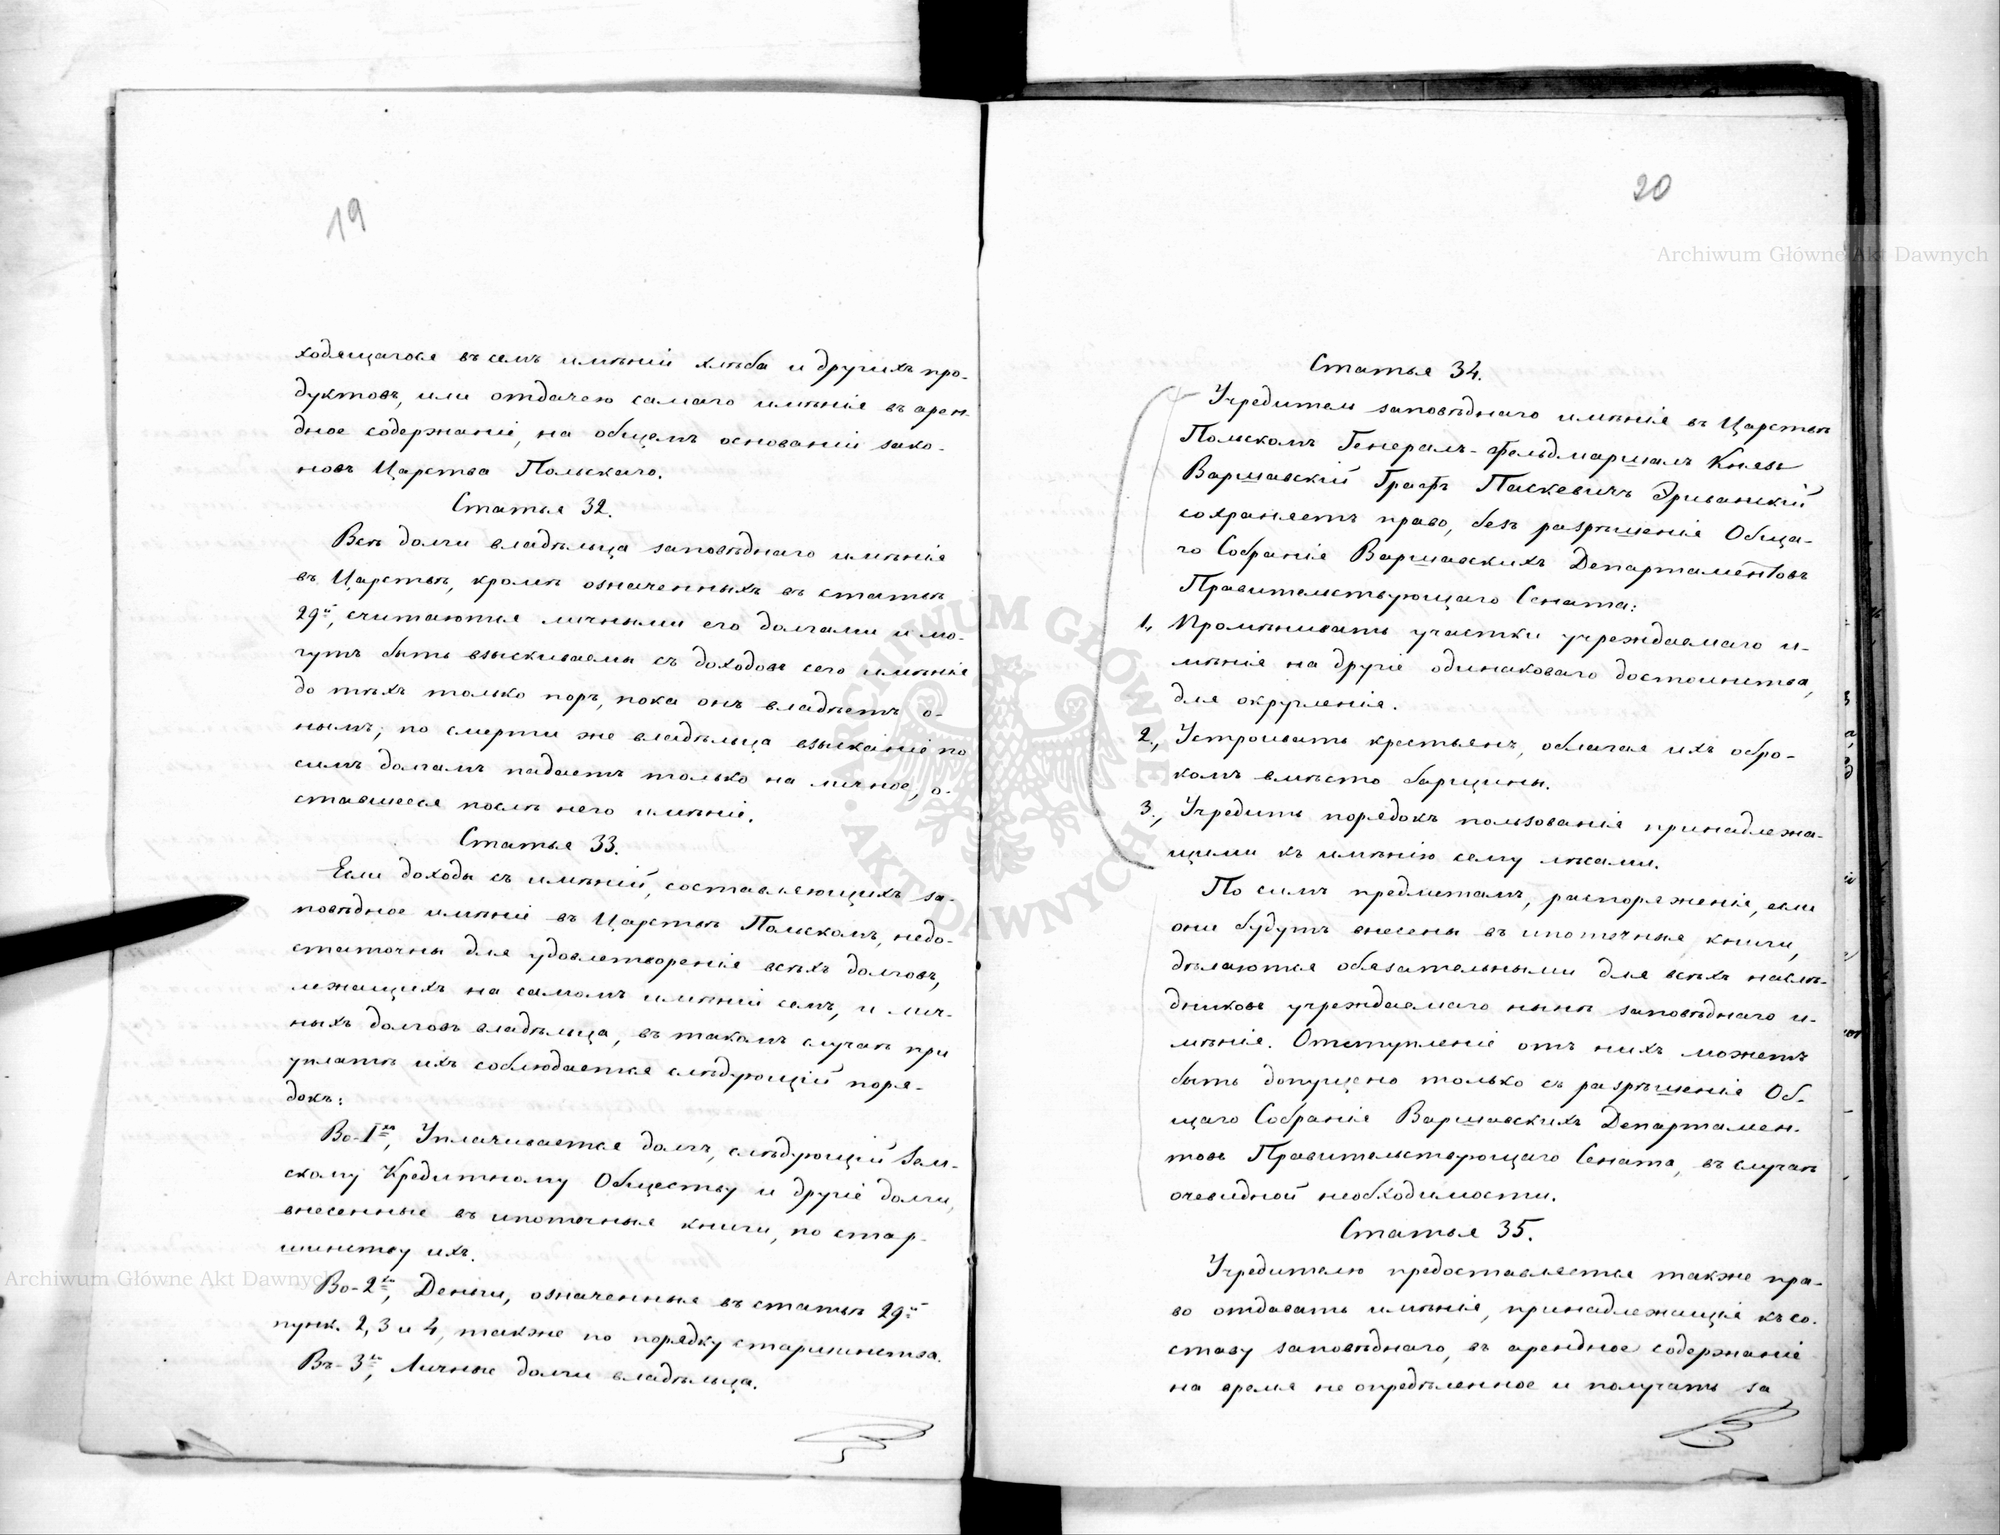 19
ходящагося въ семъ имѣніи хлѣба и другихъ про-
дуктовъ, или отдачею самаго имѣнія въ арен-
дное содержаніе, на общемъ основаніи зако-
новъ Царства Польскаго.
Статья 32.
Всѣ долги владѣльца заповѣднаго имѣнія
въ Царствѣ, кромѣ означенныхъ въ статьѣ
29й, считаются личными его долгами и мо-
гутъ быть взыскиваемы съ доходовъ сего имѣнія
до тѣхъ только поръ, пока онъ владѣетъ о-
нымъ; по смерти же владѣльца взысканіе по
симъ долгамъ падаетъ только на личное, о-
ставшееся послѣ него имѣніе.
Статья 33.
Если доходы съ имѣній, составляющихъ за-
повѣдное имѣніе въ Царствѣ Польскомъ, недо-
статочны для удовлетворенія всѣхъ долговъ,
лежащихъ на самомъ имѣніи семъ, и лич-
ныхъ долговъ владѣльца, въ такомъ случаѣ при
уплатѣ ихъ соблюдается слѣдующій поря-
докъ:
Во-1хъ, Уплачивается долгъ, слѣдующій Зем-
скому Кредитному Обществу и другіе долги,
внесенные въ ипотечныя книги, по стар-
шинству ихъ.
Во-2хъ, Деньги, означенныя въ статьѣ 29й
пунк. 2, 3 и 4, также по порядку старшинства.
Въ-3хъ, Личные долги владѣльца.
20
Статья 34.
Учредитель заповѣднаго имѣнія въ Царствѣ
Польскомъ Генералъ-Фельдмаршалъ Князь
Варшавскій Графъ Паскевичъ Эриванскій
сохраняетъ право, безъ разрѣшенія Обща-
го Собранія Варшавскихъ Департаментовъ
Правительствующаго Сената:
1., Промѣнивать участки учреждаемаго и-
мѣнія на другіе одинаковаго достоинства,
для округленія.
2., Устроивать крестьянъ, облагая ихъ обро-
комъ вмѣсто барщины.
3., Учредить порядокъ пользованія принадлежа-
щими къ имѣнію сему лѣсами.
По симъ предметамъ, распоряженія, если
они будутъ внесены въ ипотечныя книги,
дѣлаются обязательными для всѣхъ наслѣ-
дниковъ учреждаемаго нынѣ заповѣднаго и-
мѣнія. Отступленіе отъ нихъ можетъ
быть допущено только съ разрѣшенія Об-
щаго Собранія Варшавскихъ Департамен-
товъ Правительствующаго Сената, въ случаѣ
очевидной необходимости.
Статья 35.
Учредителю предоставляется также пра-
во отдавать имѣнія, принадлежащія къ со-
ставу заповѣднаго, въ арендное содержаніе
на время не опредѣленное и получать за
Archiwum Główne Akt Dawnych
Archiwum Główne Akt Dawnych
ARCHIWUM GŁÓWNE AKT DAWNYCH